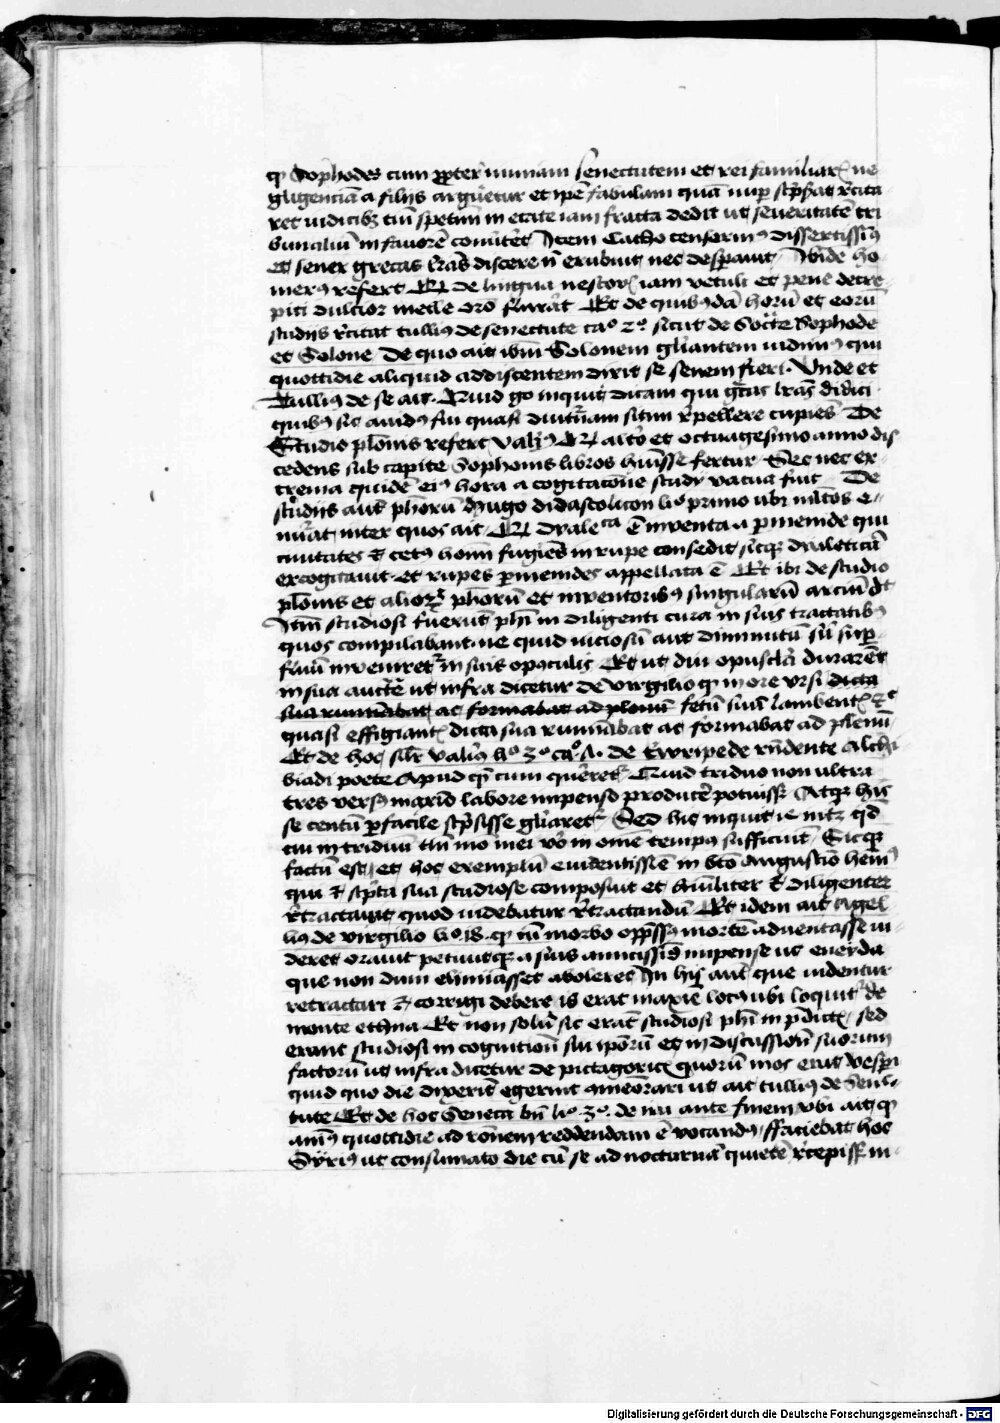 qꝫ Sophocles cum propter nimiam senectutem et rei familiarꝭ ne
gligenciā a filiis argueretur et ipē fabulam quā nuꝑ scp̄sat recita
ret iudicibꝫ tm̄ spetim̄ in etate iam fracta dedit ut seueritatē tri
bunaliū in fauorē cōuteret Item Catho censorinꝰ dissertissimꝰ
et senex grecas lr̄as discere nō erubuit nec desꝑauit Vnde ho
merꝰ refert Qꝫ de lingua nestorꝭ iam vetuli et pene decre
piti dulcior melle oro fluxat Et de quibꝰdā horū et eorū
studiis recitat tullius de senectute caᵒ 2ᵒ sicut de Socrate Sophocle
et Solone De quo ait ibm̄ Solonem glīantem uidimꝰ qui
quottidie aliquid addiscentem dixit se senem fieri · Vnde et
Tullius de se ait · Quid gͦ inquit dicam qui gͣcas lr̄as didici
quibꝰ sic auidꝰ fui quasi diutnam sitim repellere cupiēs De
Studio platonis refert Valiꝰ Qꝫ altͦ et octuagesimo anno dis
cedens sub capite Sophonis libros huisse fertur Sec nec ex-
trema quidē eiꝰ hora a cogitacione studii vacua fuit De
studiis aut phōrū Hugo didascolicon liᵒ primo ubi ml̄tos e-
nuāt inter quos ait Qꝫ dyaletica ē inventa a permenide qui
ciuitates et cetꝰ hom̄ fugiēs in rupe consedit sicqꝫ dyaleticā
excogitauit et rupes permenides appellata ē Et ibi de studio
platonis et alioꝝ phōrū et inventoribꝰ singularū arciū dᵗ
Itm̄ studiosi fuerūt phī in diligenti cura in suis tractatibꝰ
quos compilabant ne quid viciosū aut diminutū siue suꝑ-
fluū inveniretur in suis opusculis Et ut diu opuscla durarēt
in sua auctē ut infra dicetur de virgilio qꝫ more ursi dicta
sua ruminabat ac formabat ad plenū fetū suū lambentꝭ etc
quasi effigiantꝭ dicta sua ruminabat ac formabat ad plenū
Et de hoc silr valiꝰ liᵒ 3ᵒ caᵒ de Ewripede rn̄dente Alchi
biadi poete Apud qm̄ cum queretur Quid triduo non ultra
tres versꝰ maximo labore impenso producere potuisset Atqꝫ his
se centū ꝑfacile scpsisse gloriaretur Sed hic inquit ē int̄ qd
tui in triduū tm̄ mō mei vō in omē tempꝰ sufficiūt Sicqꝫ
factū est et hoc exemplū euidentissimē in btō Augustīo hem̄ꝰ
qui et scpta sua studiose composuit et humiliter et diligenter
retractauit quod uidebatur retractandū Et idem ait Agel
lius de virgilio liᵒ 18 qꝫ cū morbo oppressꝰ mortē aduentasse ui-
deret orauit petiuitqꝫ a suis amicissimis impense ut eneyda
que non dum elimasset aboleret In his aut que uidentur
retractari et corrigi debere is erat maxīe locꝰ ubi loquitur de
monte ethna Et non solū sic erant studiosi phī in pdictꝭ sed
erant studiosi in cognitione sui ipōrū et in discussiōne suorum
factorū ut infra dicetur de pictagoricꝭ quorū mos erat vesperi
quid quo die dixerit egerint cōmēorari ut ait tullius de senec-
tute Et de hoc Seneca bn̄ liᵒ 3ᵒ de ira ante finem ubi ait qꝫ
animꝰ quottidie ad rōnem reddendam ē vocandꝰ ffaciebat hoc
Syriꝰ ut consumato die cū se ad nocturnā quietē recepisset in-